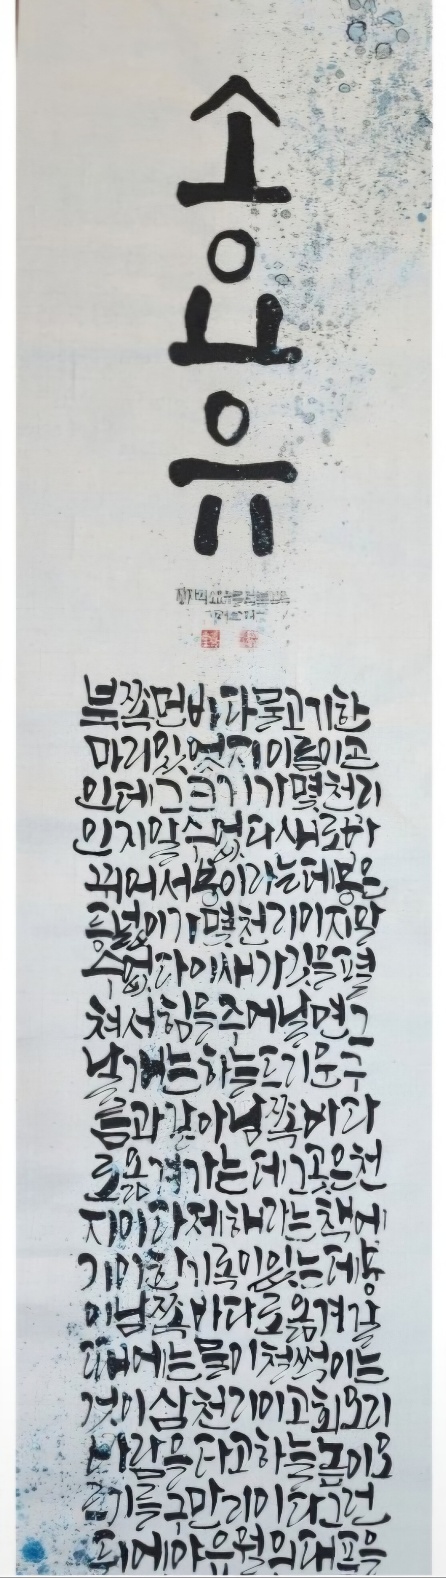 소
요
유
북쪽먼바다물고기한
마리있엇지이름이곤
인데그크기가몇천리
인지알수없다새로바
뀌어서붕이라는데붕은
등넓이가몇천리이지알
수없다이새가깃을펼
쳐서힘을주어날면그
날개는하늘드리운구
름과같아남쪽바다
로옮겨가는데그곳은천
지이다제해라는책에
기이한기록이있는데붕
이남쪽바다로옮겨갈
때에는물이철썩이는
것이삼천리이고회오리
바람을타고하늘높이오
르기를구만리이다그런
뒤에야유월의대풍을